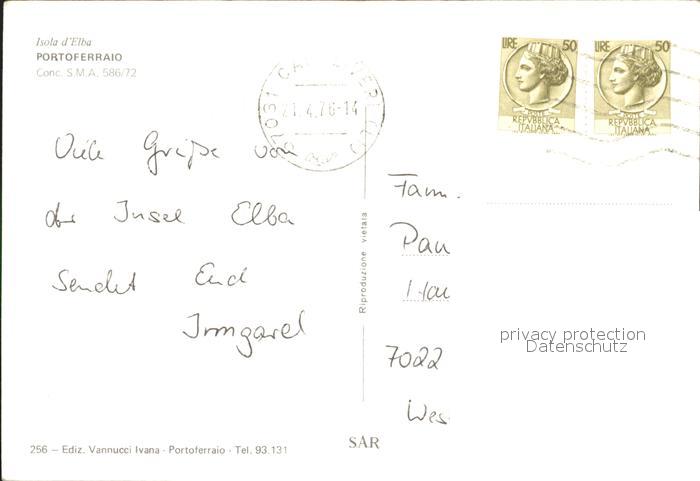 Isola d'Elba
PORTOFERRAIO
Conc. S.M.A. 586/72
21.4.76-14
LIRE 50
REPVBBLICA
ITALIANA
LIRE 50
REPVBBLICA
ITALIANA
Viele Grüße von
der Insel Elba
Sendet Euch
Irmgard
Riproduzione vietata
Fam.
Pau
Hau
7022
Wes
privacy protection
Datenschutz
256 – Ediz. Vannucci Ivana - Portoferraio - Tel. 93.131
SAR